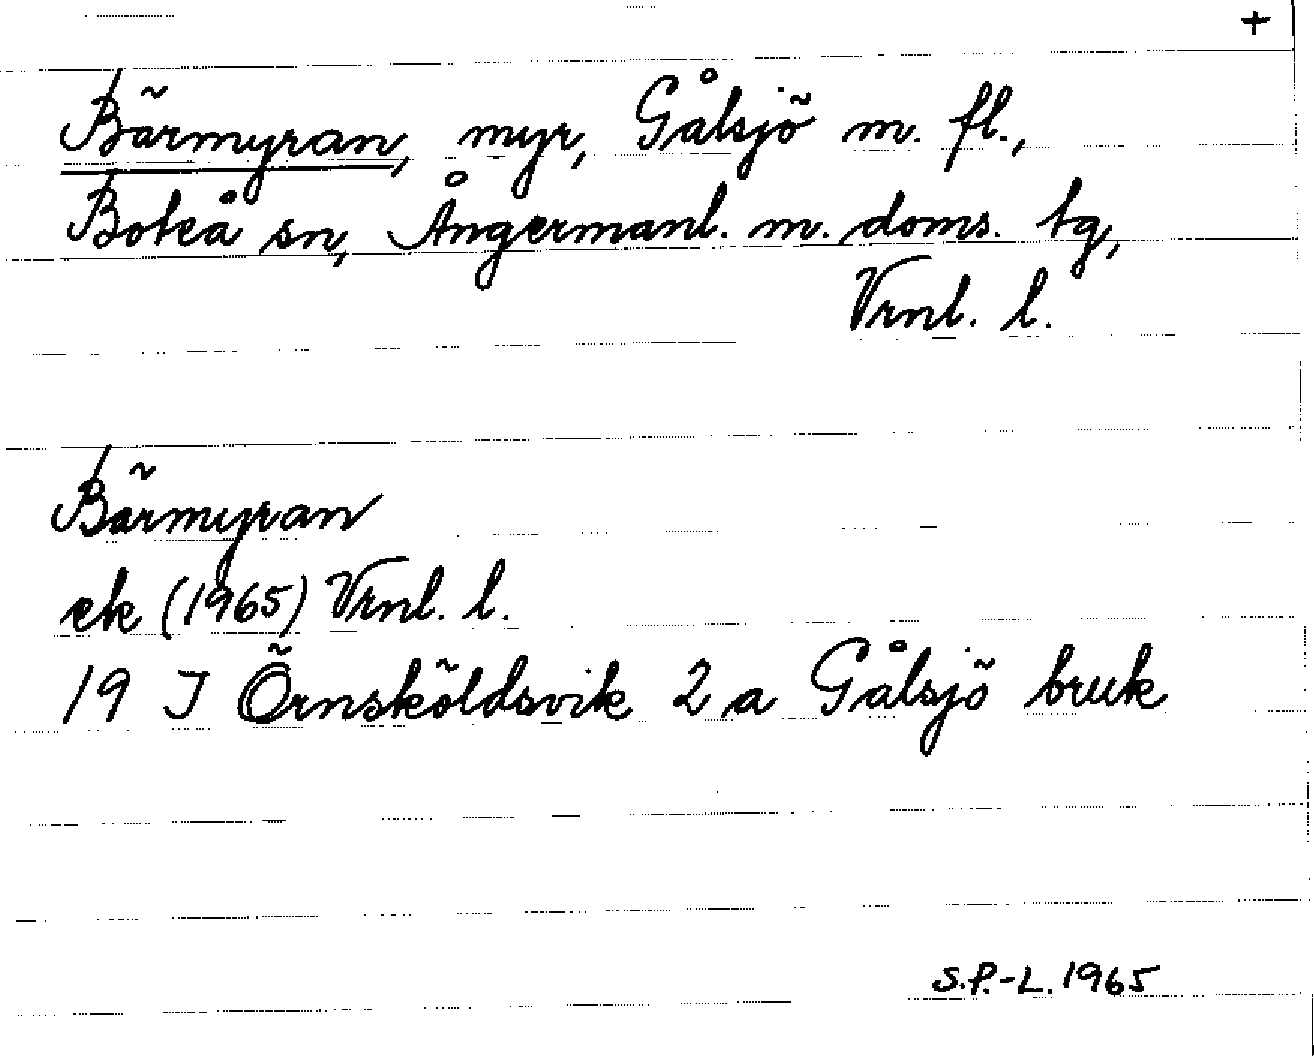 +
Bärmyran, myr, Gålsjö m. fl.,
Boteå sn, Ångermanl. m. doms. tg,
Vrnl. l.
Bärmyran
ek (1965) Vrnl. l.
19 I Örnsköldsvik 2 a Gålsjö bruk
S.P.-L. 1965